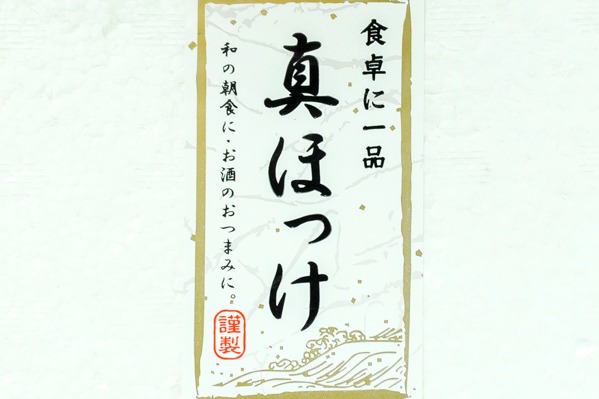 食卓に一品
真ほっけ
和の朝食に・お酒のおつまみに。
謹製